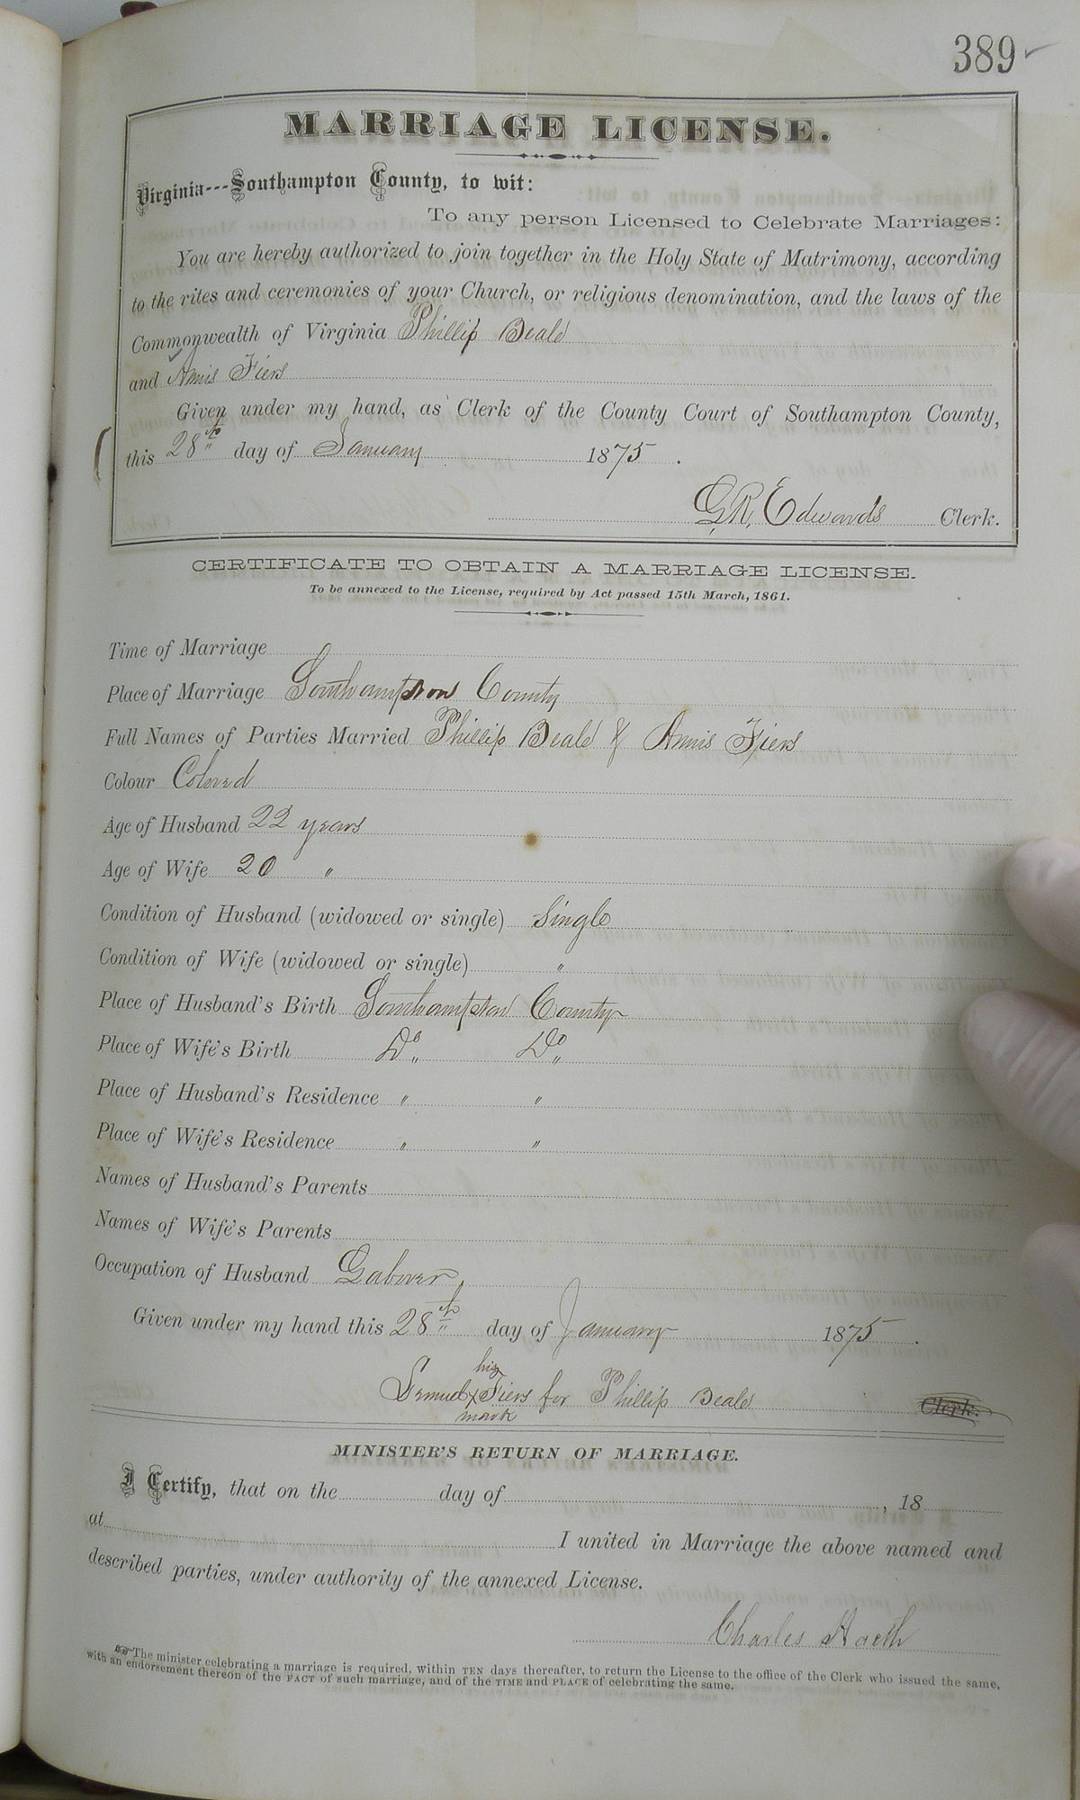 389
MARRIAGE LICENSE.
Virginia---Southampton County, to wit:
To any person Licensed to Celebrate Marriages:
You are hereby authorized to join together in the Holy State of Matrimony, according
to the rites and ceremonies of your Church, or religious denomination, and the laws of the
Commonwealth of Virginia Phillip Beale
and Annis Fiers
Given under my hand, as Clerk of the County Court of Southampton County,
this 28th day of January 1875.
G.R. Edwards Clerk.
CERTIFICATE TO OBTAIN A MARRIAGE LICENSE.
To be annexed to the License, required by Act passed 15th March, 1861.
Time of Marriage
Place of Marriage Southampton County
Full Names of Parties Married Phillip Beale & Annis Fiers
Colour Colored
Age of Husband 22 years
Age of Wife 20 "
Condition of Husband (widowed or single) Single
Condition of Wife (widowed or single) "
Place of Husband's Birth Southampton County
Place of Wife's Birth Do Do
Place of Husband's Residence " "
Place of Wife's Residence " "
Names of Husband's Parents
Names of Wife's Parents
Occupation of Husband Laborer
Given under my hand this 28th day of January 1875.
his
Lemuel X Fiers for Phillip Beale Clerk.
mark
MINISTER'S RETURN OF MARRIAGE.
I Certify, that on the day of , 18
at I united in Marriage the above named and
described parties, under authority of the annexed License.
Charles
The minister celebrating a marriage is required, within TEN days thereafter, to return the License to the office of the Clerk who issued the same,
with an endorsement thereon of the FACT of such marriage, and of the TIME and PLACE of celebrating the same.